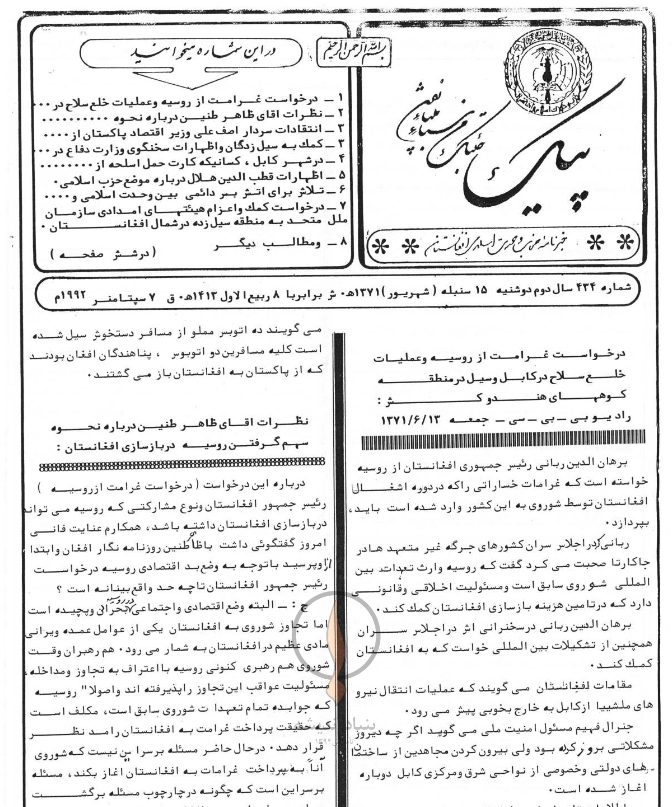 بسم الله الرحمن الرحیم
پیک
خبرنامه حزب وحدت اسلامی افغانستان
در این شماره میخوانید
۱ ـ درخواست غرامت از روسیه وعملیات خلع سلاح در ۰۰۰
۲ ـ نظرات اقای ظاهر طنین درباره نحوه ۰۰۰۰۰۰۰۰۰۰
۳ ـ انتقادات سردار اصف علی وزیر اقتصاد پاکستان از ۰۰۰۰
۳ ـ کمک به سیل زدگان واظهارات سخنگوی وزارت دفاع در ۰۰۰
۴ ـ درشهر کابل ، کسانیکه کارت حمل اسلحه از ۰۰۰۰۰۰۰۰
۵ ـ اظهارات قطب الدین هلال درباره موضع حزب اسلامی ۰
۶ ـ تلاش برای اتش بس دائمی بین وحدت اسلامی و ۰۰۰۰
۷ ـ درخواست کمک واعزام هیئتهای امدادی سازمان
ملل متحد به منطقه سیل زده درشمال افغانستان ۰
۸ ـ ومطالب دیگر ( درشش صفحه )
شماره ۴۳۴ سال دوم دوشنبه ۱۵ سنبله ( شهریور ) ۱۳۷۱ه۰ ش برابربا ۸ ربیع الاول ۱۴۱۳ه۰ ق ۷ سپتامبر ۱۹۹۲م
درخواست غرامت از روسیه وعملیات
خلع سلاح درکابل وسیل درمنطقه
کوههای هندوکش :
رادیو بی ـ بی ـ سی ـ جمعه ۱۳۷۱/۶/۱۳
برهان الدین ربانی رئیس جمهوری افغانستان از روسیه
خواسته است که غرامات خساراتی راکه دردوره اشغال
افغانستان توسط شوروی به این کشور وارد شده است باید،
بپردازد ۰
ربانی که دراجلاس سران کشورهای جرگه غیر متعهد هادر
جاکارتا صحبت می کرد گفت که روسیه وارث تعهدات بین
المللی شوروی سابق است ومسئولیت اخلاقی وقانونی
دارد که درتامین هزینه بازسازی افغانستان کمک کند ۰
برهان الدین ربانی درسخنرانی اش دراجلاس سران
همچنین از تشکیلات بین المللی خواست که به افغانستان
کمک کنند ۰
مقامات افغانستان می گویند که عملیات انتقال نیرو
های ملشییا ازکابل به خارج بخوبی پیش می رود ۰
جنرال فهیم مسئول امنیت ملی می گوید اگر چه دیروز
مشکلاتی بروز کرده بود ولی بیرون کردن مجاهدین از ساختمان
های دولتی وخصوصی از نواحی شرق ومرکزی کابل دوباره
اغاز شده است ۰
می گویند ده اتوبس مملو از مسافر دستخوش سیل شده
است کلیه مسافرین دو اتوبوس ، پناهندگان افغان بودند
که از پاکستان به افغانستان باز می گشتند ۰
نظرات اقای ظاهر طنین درباره نحوه
سهم گرفتن روسیه دربازسازی افغانستان :
درباره این درخواست ( درخواست غرامت ازروسیه )
رئیس جمهور افغانستان ونوع مشارکتی که روسیه می تواند
دربازسازی افغانستان داشته باشد، همکارم عنایت فانی
امروز گفتگوئی داشت باظاهر طنین روزنامه نگار افغان وابتدا
ازاو پرسید باتوجه به وضع بد اقتصادی روسیه درخواست
رئیس جمهور افغانستان تاچه حد واقع بینانه است ؟
ج : ـ البته وضع اقتصادی واجتماعی درروسیه بحرانی وپچیده است
اما تجاوز شوروی به افغانستان یکی از عوامل عمده ویرانی
مادی عظیم درافغانستان به شمار می رود ۰ هم رهبران وقت
شوروی هم رهبری کنونی روسیه بااعتراف به تجاوز ومداخله،
مسئولیت عواقب این تجاوز راپذیرفته اند واصولا" روسیه
که جوابده تمام تعهدات شوروی سابق است ، مکلف است
که حقیقت پرداخت غرامت به افغانستان رامد نظر
قرار دهد ۰ درحال حاضر مسئله برسر این نیست که شوروی
آناً به پرداخت غرامات به افغانستان اغاز بکند ، مسئله
برسراین است که چگونه درچارچوب مسئله برگشت